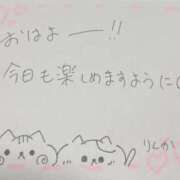 おはよー!!
今日も楽しめますように
りんか